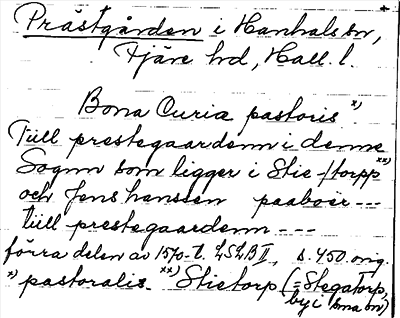 Prästgården i Hanhals sn,
Fjäre hd, Hall. l.
Bona Curia pastoris x)
Tiill prestegaardenn i denne
Sognn som ligger i Stie-/torpp xx)
och Jens hanssen paaboer ---
tiill prestegaardenn ---
förra delen av 1570-t. LSLB II, s. 450. orig.
x) pastoralis. xx) Stietorp (= Stegatorp,
by i sma sn)